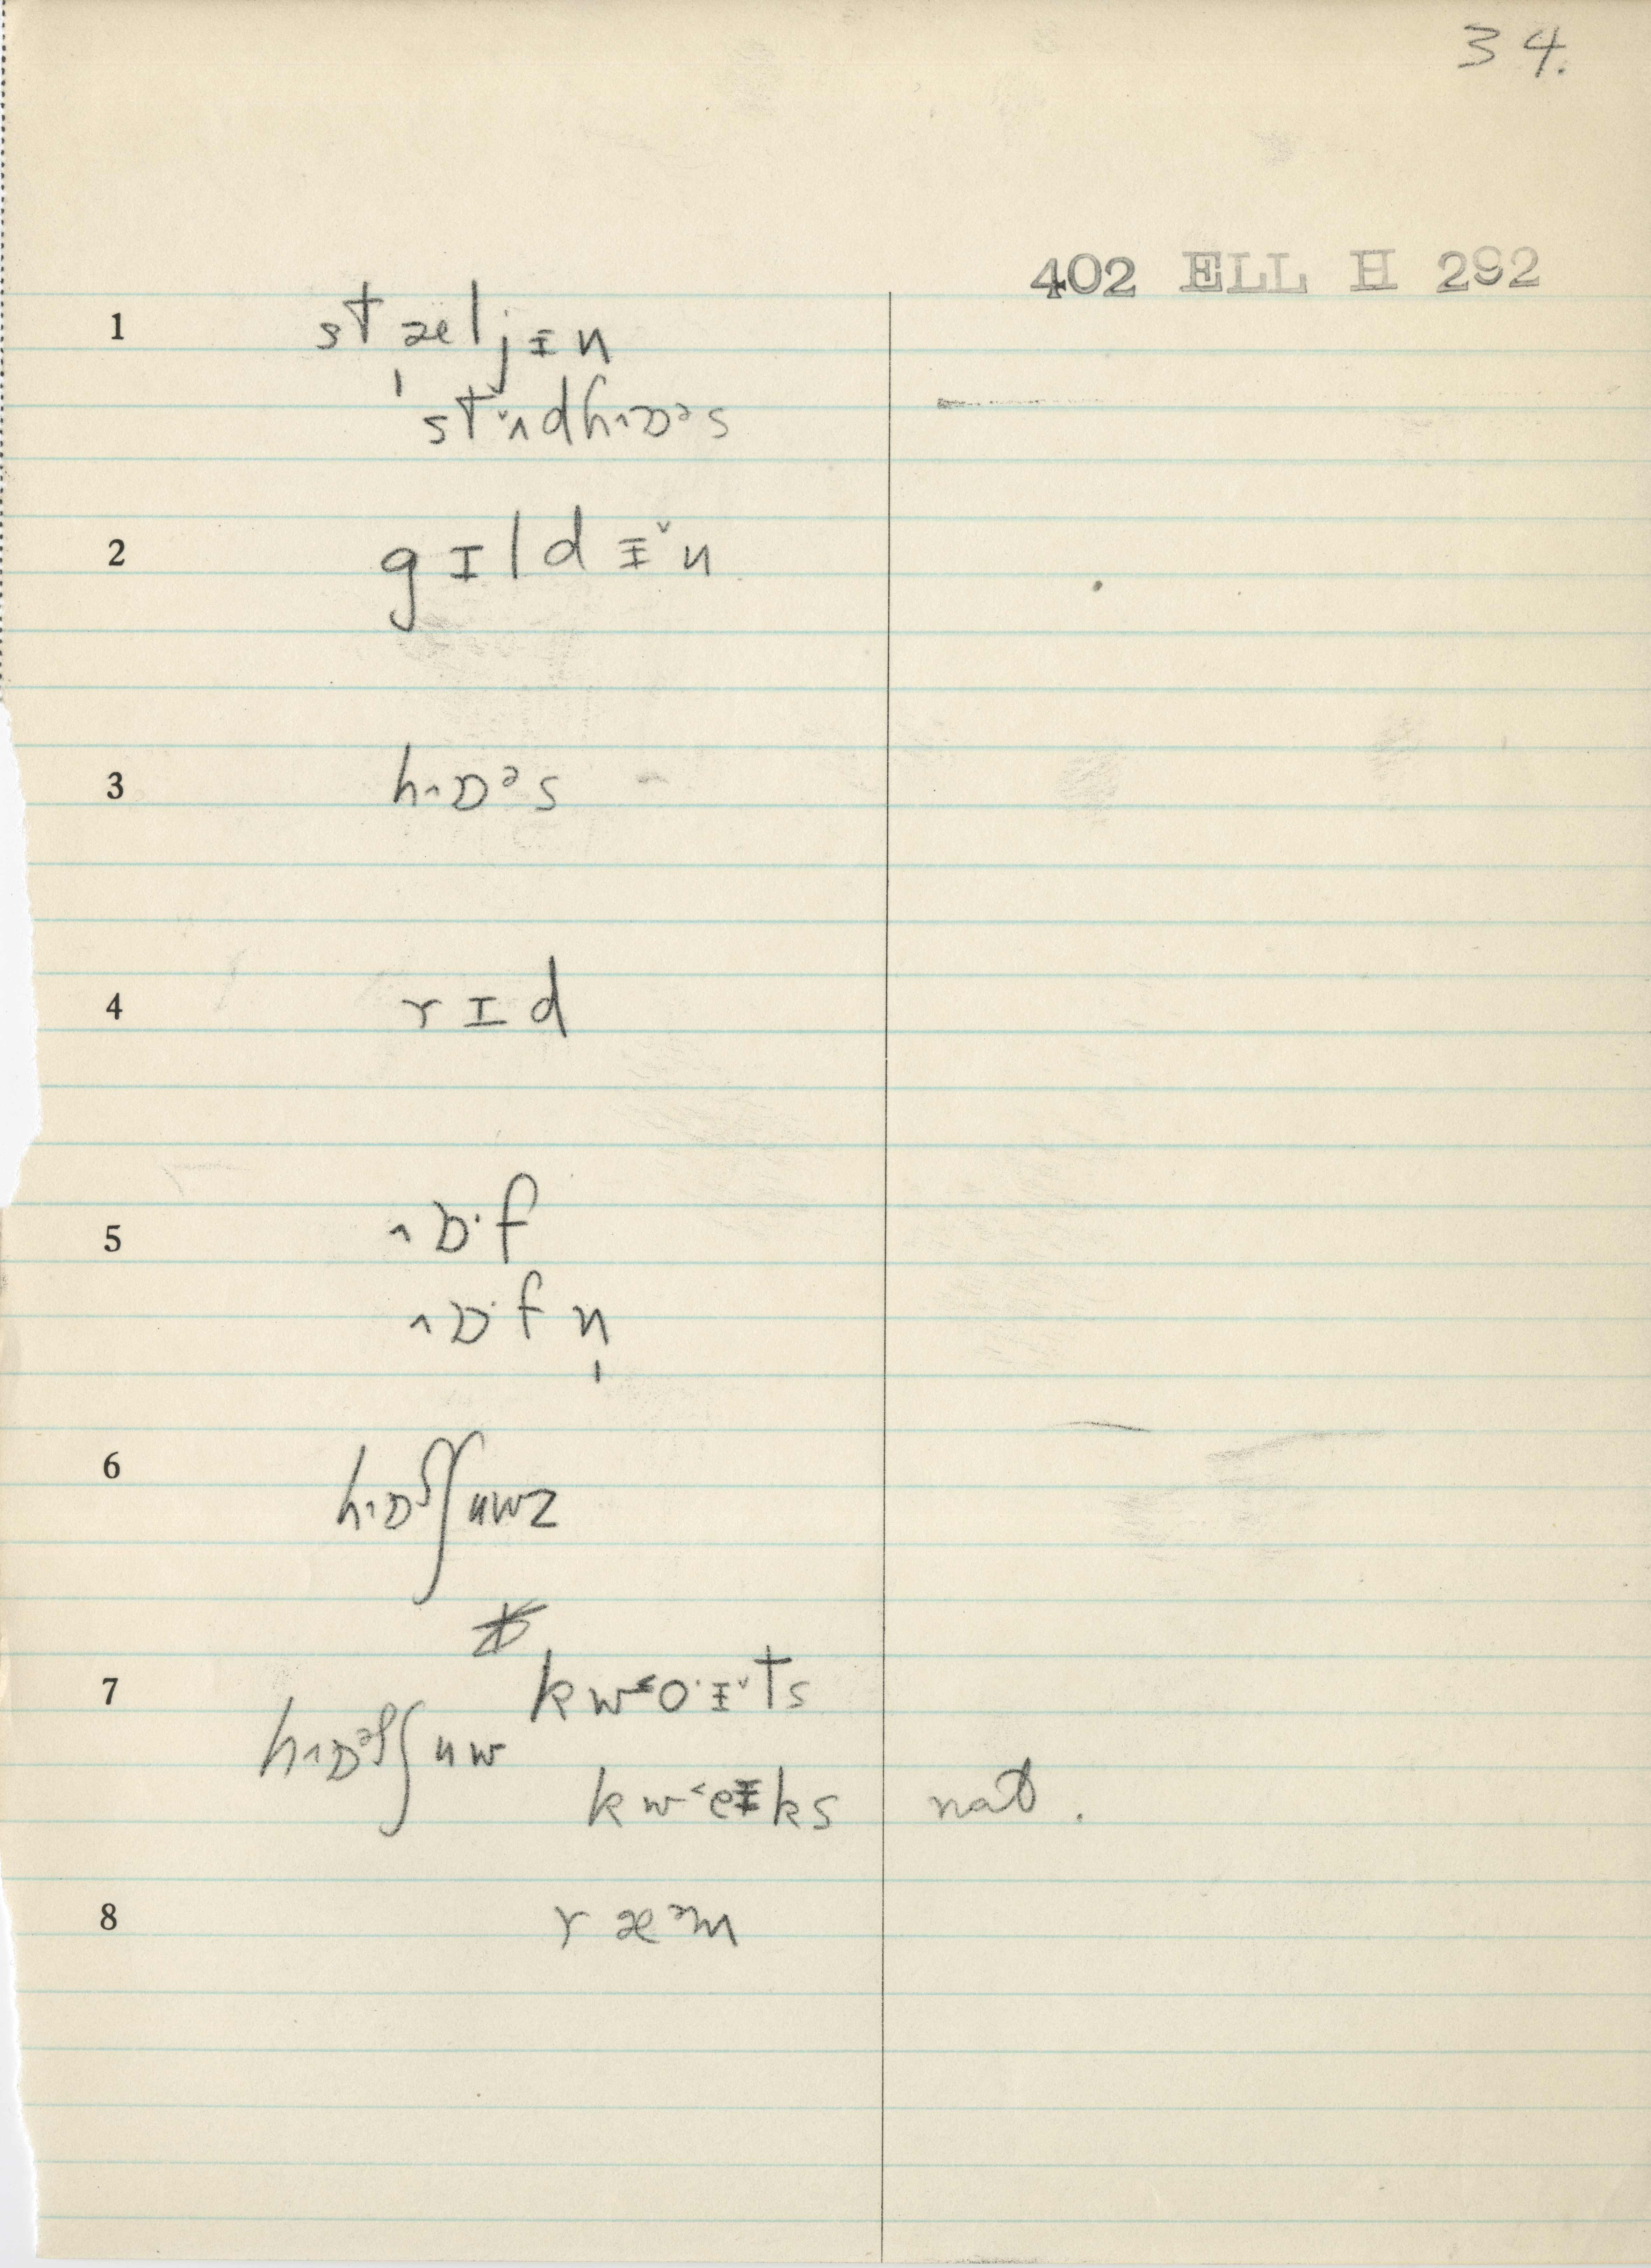 34.
402 ELL H 292
1 stæljɨn
stɐ̌ndhɒᵊs
2 gɪldɨ̌n
3 hɒᵊs
4 rɪd
5 ˄ɒ·f
˄ɒ·fn̩
6 hɒˢʃuwz
7 kw˂o·ɨ̌ts
hɒᵊˢʃuw
kw˂eɨks nat.
8 ræᵊm